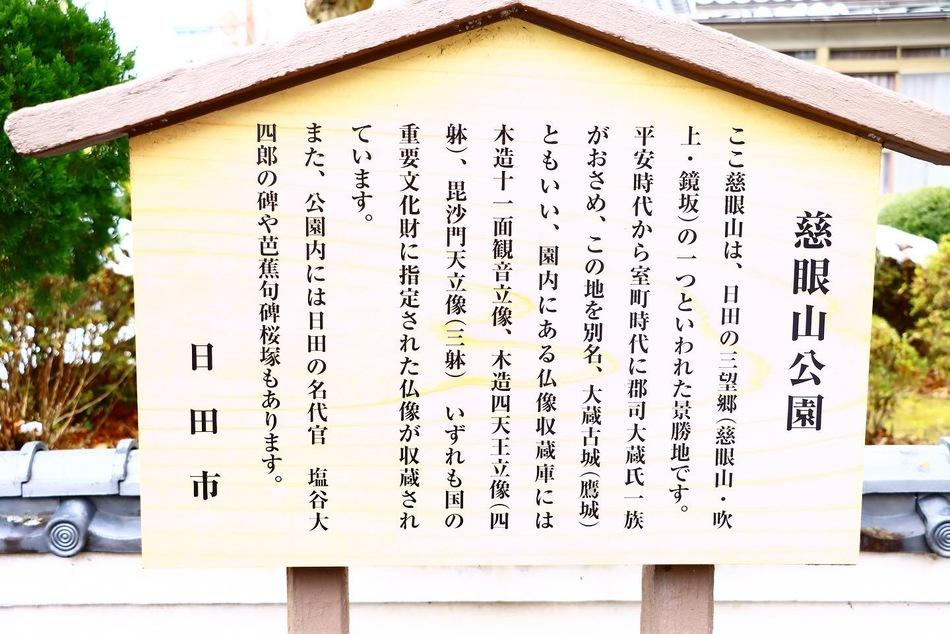 慈眼山公園
ここ慈眼山は、日田の三望郷(慈眼山・吹
上・鏡坂)の一つといわれた景勝地です。
平安時代から室町時代に郡司大蔵氏一族
がおさめ、この地を別名、大蔵古城(鷹城)
ともいい、園内にある仏像収蔵庫には
木造十一面観音立像、木造四天王立像(四
躰)、毘沙門天立像(三躰) いずれも国の
重要文化財に指定された仏像が収蔵され
ています。
また、公園内には日田の名代官 塩谷大
四郎の碑や芭蕉句碑桜塚もあります。
日田市